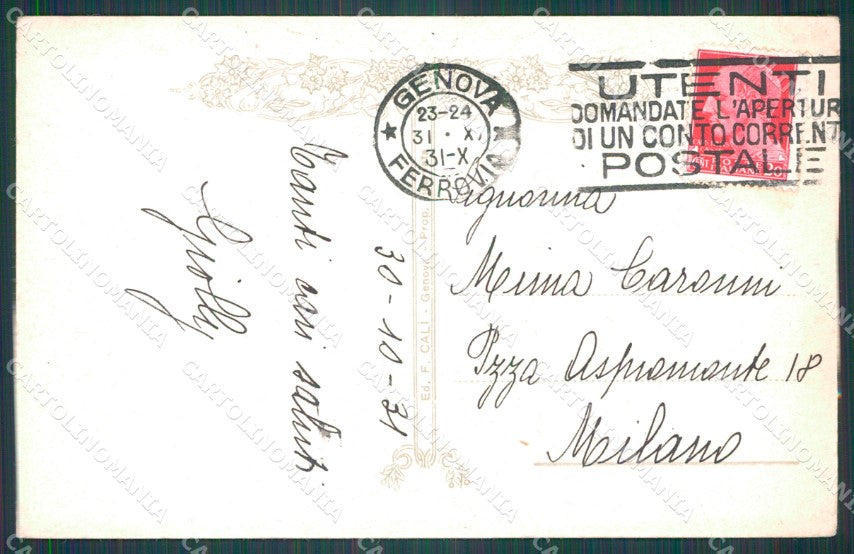 GENOVA
23-24
31 · X
31-X
FERROVIA
UTENTI
DOMANDATE L'APERTUR
DI UN CONTO CORRENT
POSTALE
Tanti cari saluti
Giolly
30-10-31
Ed. F. CALI. - Genova - Prop.
Signorina
Mima Caronni
Pzza Aspromonte 18
Milano
CARTOLINOMANIA